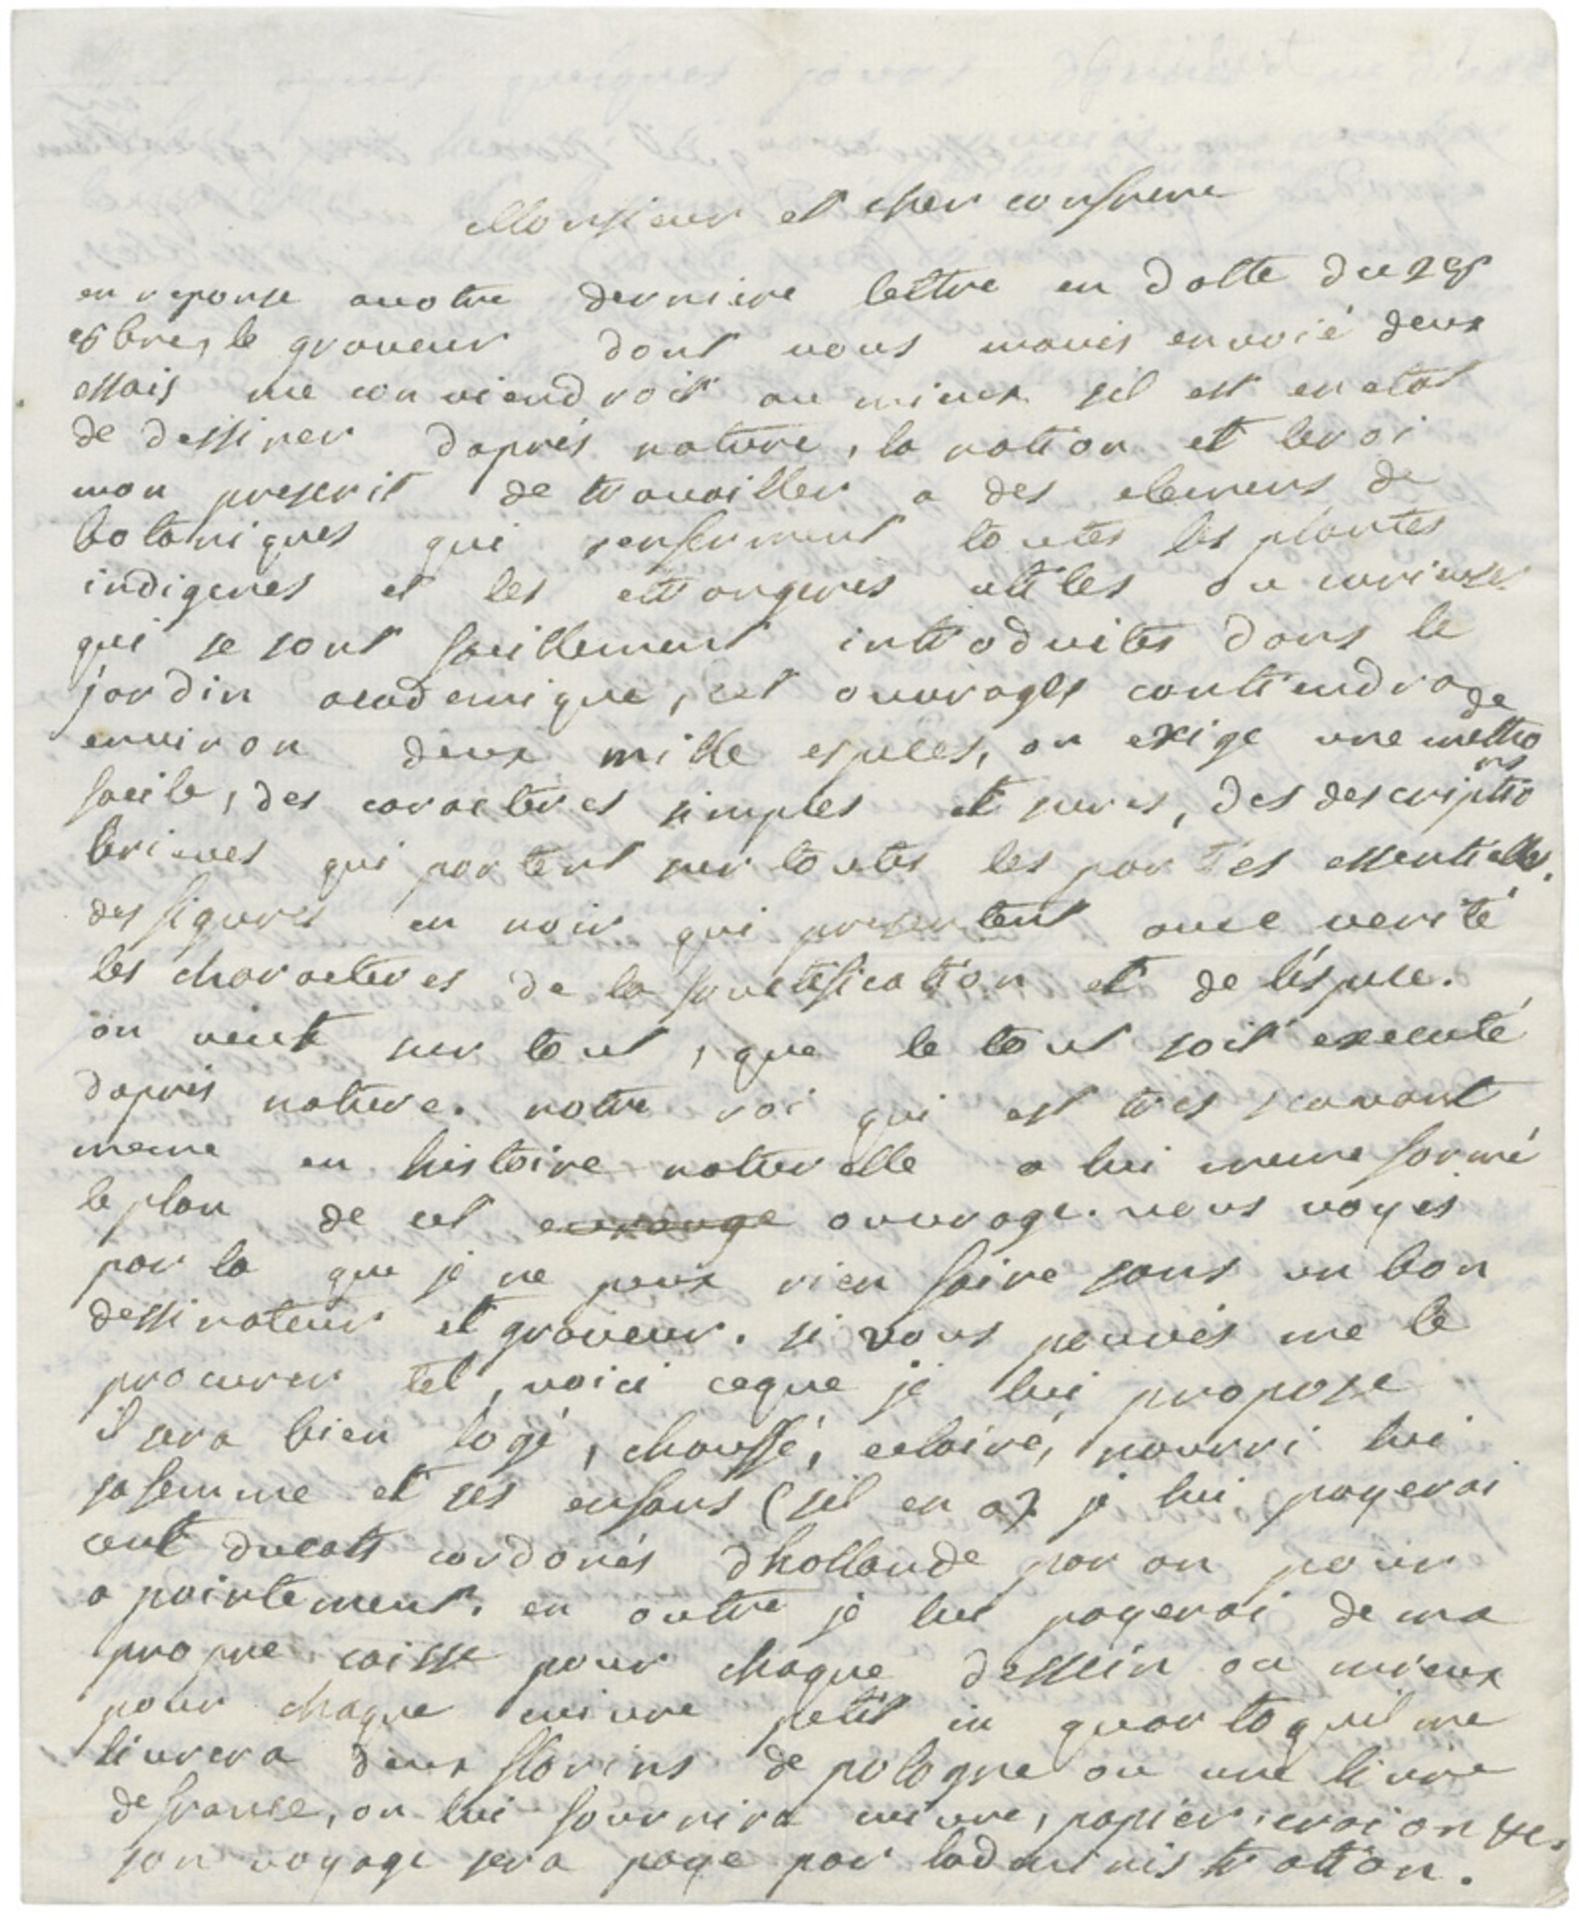 Monsieur et cher confrere
en reponse a votre derniere lettre en datte du
8bre, le graveur dont vous mavés envoié deux
essais me conviendroit au mieux sil est en etat
de dessiner daprés nature, la nation et le roi
mon prescrit de travailler a des elemens de
botaniques qui renferment toutes les plantes
indigenes et les etrangeres utiles ou curieuses
qui se sont facillement introduites dans le
jardin academique, cet ouvrages contiendra
environ deux mille especes, on exige une methode
facile, des caracteres simples et surs, des descriptions
brieves qui portent sur toutes les parties essentielles,
des figures en noir qui presentent avec verité
les characteres de la fructification et de léspece.
on veut sur tout, que le tout soit executé
daprés nature. notre roi qui est tres scavant
meme en histoire naturelle a lui meme formé
le plan de cet ouvrage. vous voyés
par la que je ne peux rien faire sans un bon
dessinateur et graveur. si vous pouvés me le
procurer tel, voici ceque je lui propose
il sera bien logé, chauffé, eclairé, nourri lui
sa femme et ses enfans (sil en a) je lui payerai
cent ducats cordonés dhollande par an pour
apointement. en outre je lui payerai de ma
propre caisse pour chaque dessein ou mieux
pour chaque cuivre petit in quarto quil me
livrera deux florins de pologne ou une livre
de france, on lui fournira cuivre, papier, craion &c.
son voyage sera paye par ladministration.